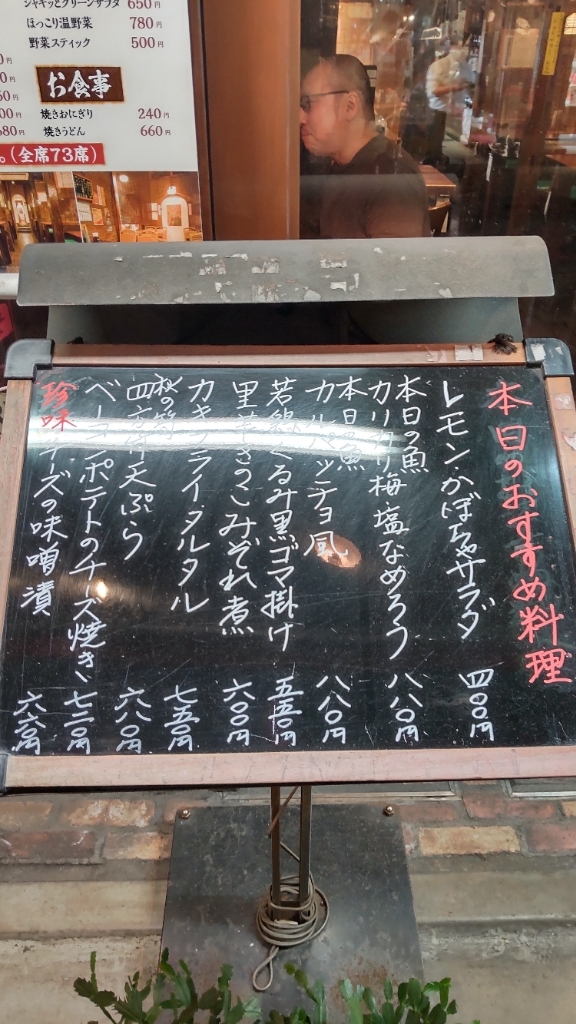 シャキッとグリーンサラダ 650円
ほっこり温野菜 780円
野菜スティック 500円
お食事
焼きおにぎり 240円
焼きうどん 660円
(全席73席)
本日のおすすめ料理
レモン・かぼちゃサラダ 四〇〇円
本日の魚
カリカリ梅塩なめろう 八八〇円
本日の魚
カルパッチョ風 八八〇円
若鶏くるみ黒ゴマ掛け 五五〇円
里芋きのこみぞれ煮 六〇〇円
カキフライ・タルタル 七五〇円
四方竹天ぷら 六八〇円
ベーコンポテトのチーズ焼き 七二〇円
珍味 チーズの味噌漬 六六〇円